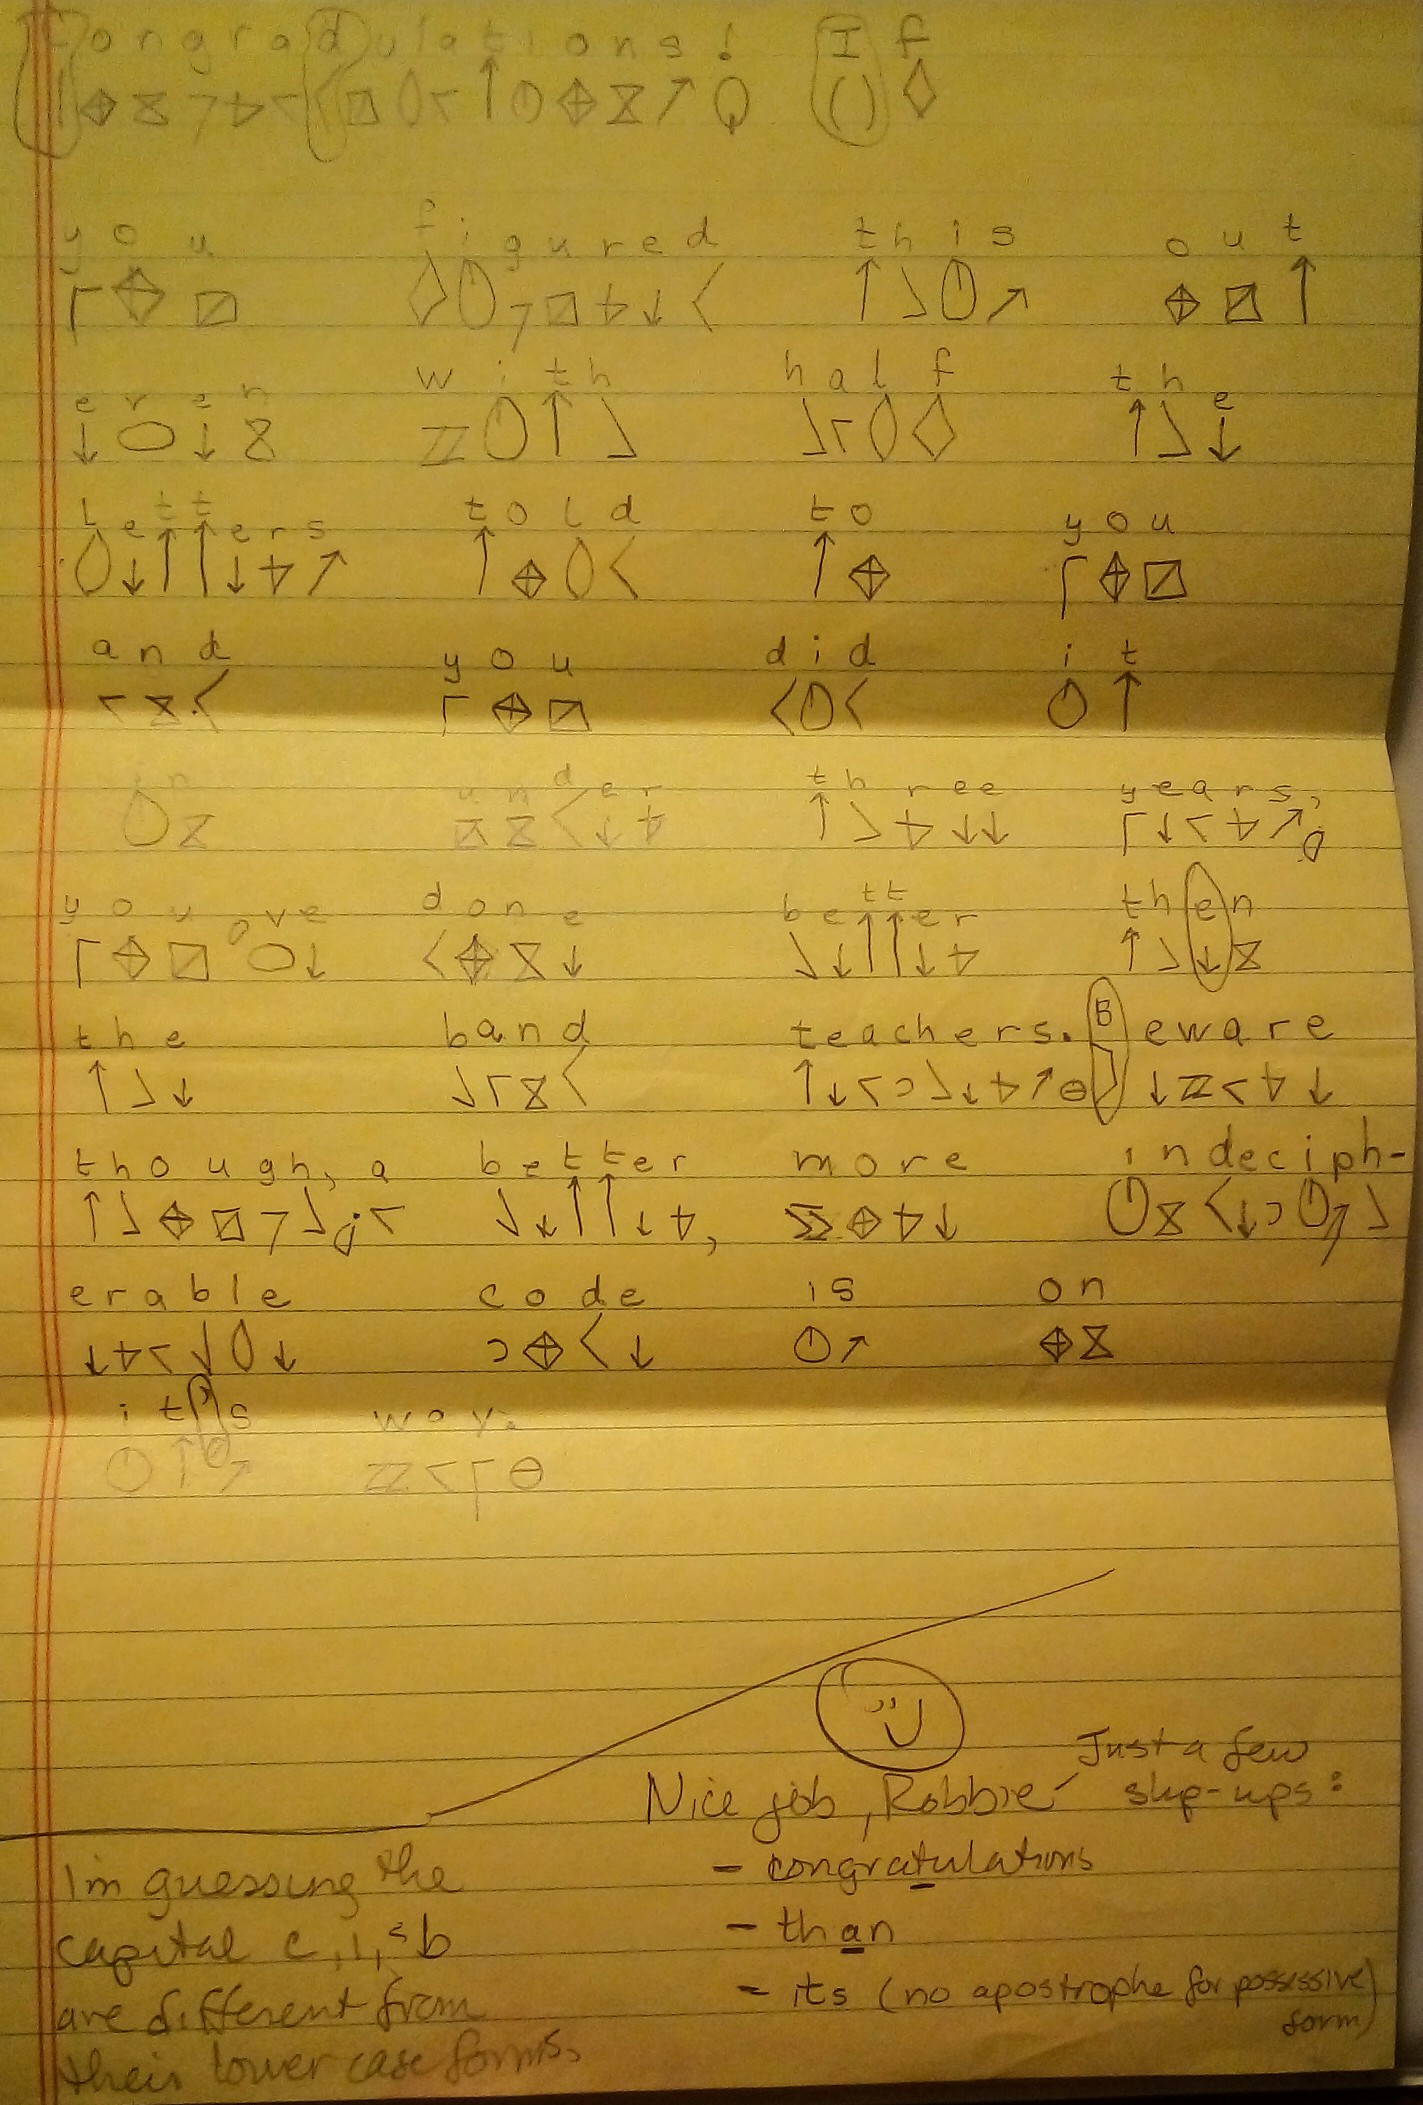 Congradulations! If
you figured this out
even with half the
letters told to you
and you did it
in under three years,
you've done better then
the band teachers. Beware
though, a better more indeciph-
erable code is on
it's way.
Just a few
Nice job, Robbie - slip-ups:
- congratulations
- than
- its (no apostrophe for possessive form)
I'm guessing the
capital c, i, & b
are different from
their lower case forms.